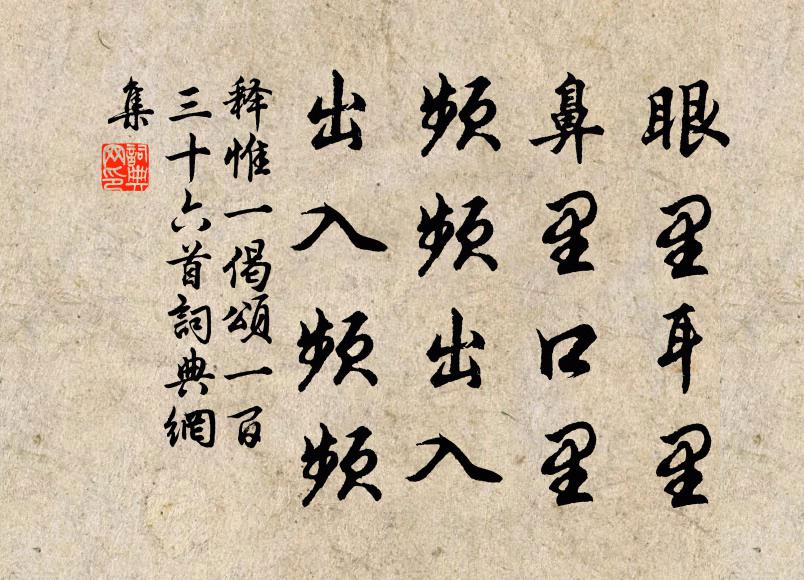 眼里耳里
鼻里口里
频频出入
出入频频
释惟一偈颂一百
三十六首詞典網
集
詞典網印